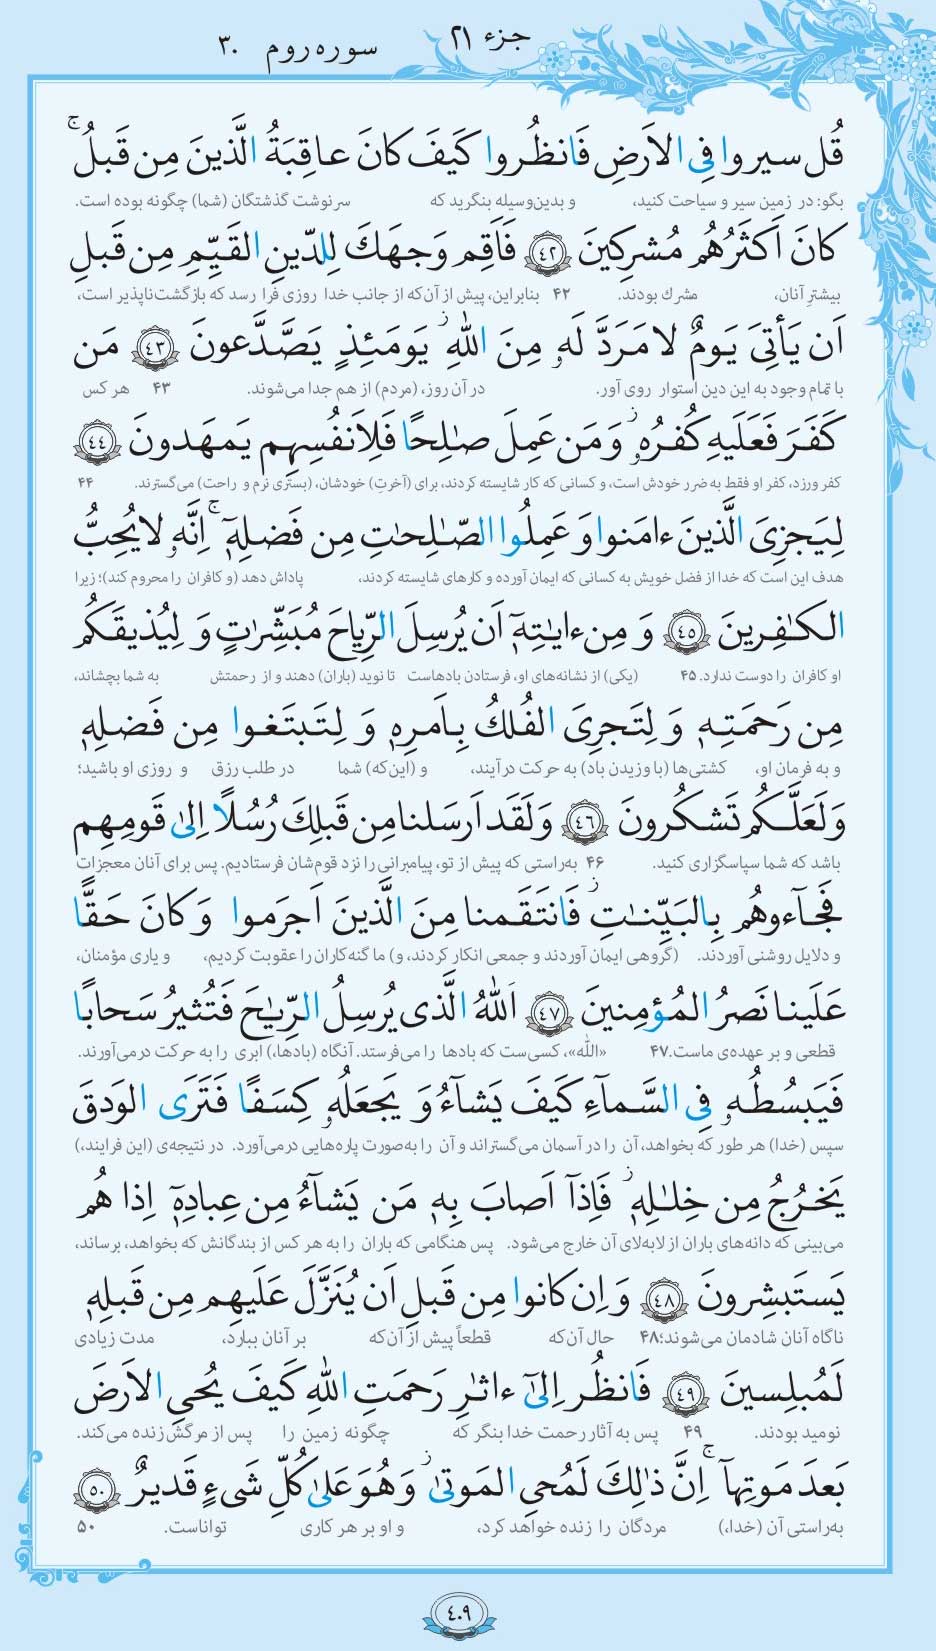 جزء ۲۱ سوره روم ۳۰
قُل سیروا فِی الاَرضِ فَانظُروا کَیفَ کانَ عاقِبَةُ الَّذینَ مِن قَبلُ ۚ
بگو: در زمین سیر و سیاحت کنید، و بدین‌وسیله بنگرید که سرنوشت گذشتگان (شما) چگونه بوده است.
کانَ اَکثَرُهُم مُشرِکینَ ﴿۴۲﴾ فَاَقِم وَجهَكَ لِلدّینِ القَیِّمِ مِن قَبلِ
بیشترِ آنان، مشرك بودند. ۴۲ بنابراین، پیش از آن‌که از جانب خدا روزی فرا رسد که بازگشت‌ناپذیر است،
اَن یَأتِیَ یَومٌ لا مَرَدَّ لَهٗ مِنَ اللهِ ۖ یَومَئِذٍ یَصَّدَّعونَ ﴿۴۳﴾ مَن
با تمام وجود به این دین استوار روی آور. در آن روز، (مردم) از هم جدا می‌شوند. ۴۳ هر کس
کَفَرَ فَعَلَیهِ کُفرُهٗ ۖ وَ مَن عَمِلَ صٰلِحًا فَلِاَنفُسِهِم یَمهَدونَ ﴿۴۴﴾
کفر ورزد، کفر او فقط به ضرر خودش است، و کسانی که کار شایسته کردند، برای (آخرتِ) خودشان، (بستری نرم و راحت) می‌گسترند. ۴۴
لِیَجزِیَ الَّذینَ ءامَنوا وَ عَمِلُوا الصّٰلِحٰتِ مِن فَضلِهٖٓ ۚ اِنَّهٗ لا یُحِبُّ
هدف این است که خدا از فضل خویش به کسانی که ایمان آورده و کارهای شایسته کردند، پاداش دهد (و کافران را محروم کند)؛ زیرا
الکٰفِرینَ ﴿۴۵﴾ وَ مِن ءایٰتِهٖٓ اَن یُرسِلَ الرِّیاحَ مُبَشِّرٰتٍ وَ لِیُذیقَکُم
او کافران را دوست ندارد. ۴۵ (یکی) از نشانه‌های او، فرستادن بادهاست تا نوید (باران) دهند و از رحمتش به شما بچشاند،
مِن رَحمَتِهٖ وَ لِتَجرِیَ الفُلكُ بِاَمرِهٖ وَ لِتَبتَغوا مِن فَضلِهٖ
و به فرمان او، کشتی‌ها (با وزیدن باد) به حرکت درآیند، و (این‌که) شما در طلب رزق و روزی او باشید؛
وَ لَعَلَّکُم تَشکُرونَ ﴿۴۶﴾ وَ لَقَد اَرسَلنا مِن قَبلِكَ رُسُلًا اِلیٰ قَومِهِم
باشد که شما سپاسگزاری کنید. ۴۶ به‌راستی که پیش از تو، پیامبرانی را نزد قوم‌شان فرستادیم. پس برای آنان معجزات
فَجآءوهُم بِالبَیِّنٰتِ ۖ فَانتَقَمنا مِنَ الَّذینَ اَجرَموا وَ کانَ حَقًّا
و دلایل روشنی آوردند. (گروهی ایمان آوردند و جمعی انکار کردند، و) ما گنه‌کاران را عقوبت کردیم، و یاری مؤمنان،
عَلَینا نَصرُ المُؤمِنینَ ﴿۴۷﴾ اَللهُ الَّذی یُرسِلُ الرِّیٰحَ فَتُثیرُ سَحابًا
قطعی و بر عهده‌ی ماست. ۴۷ «اللّٰه»، کسی‌ست که بادها را می‌فرستد. آنگاه (بادها،) ابری را به حرکت درمی‌آورند.
فَیَبسُطُهٗ فِی السَّمآءِ کَیفَ یَشآءُ وَ یَجعَلُهٗ کِسَفًا فَتَرَی الوَدقَ
سپس (خدا) هر طور که بخواهد، آن را در آسمان می‌گستراند و آن را به‌صورت پاره‌هایی درمی‌آورد. در نتیجه‌ی (این فرایند،)
یَخرُجُ مِن خِلٰلِهٖ ۖ فَاِذآ اَصابَ بِهٖ مَن یَشآءُ مِن عِبادِهٖٓ اِذا هُم
می‌بینی که دانه‌های باران از لابه‌لای آن خارج می‌شود. پس هنگامی که باران را به هر کس از بندگانش که بخواهد، برساند،
یَستَبشِرونَ ﴿۴۸﴾ وَ اِن کانوا مِن قَبلِ اَن یُنَزَّلَ عَلَیهِم مِن قَبلِهٖ
ناگاه آنان شادمان می‌شوند؛ ۴۸ حال آن‌که قطعاً پیش از آن‌که بر آنان ببارد، مدت زیادی
لَمُبلِسینَ ﴿۴۹﴾ فَانظُر اِلیٰٓ ءاثٰرِ رَحمَتِ اللهِ کَیفَ یُحیِ الاَرضَ
نومید بودند. ۴۹ پس به آثار رحمت خدا بنگر که چگونه زمین را پس از مرگش زنده می‌کند.
بَعدَ مَوتِهآ ۚ اِنَّ ذٰلِكَ لَمُحیِ المَوتیٰ ۖ وَ هُوَ عَلیٰ کُلِّ شَیءٍ قَدیرٌ ﴿۵۰﴾
به‌راستی آن (خدا،) مردگان را زنده خواهد کرد، و او بر هر کاری تواناست. ۵۰
۴۰۹